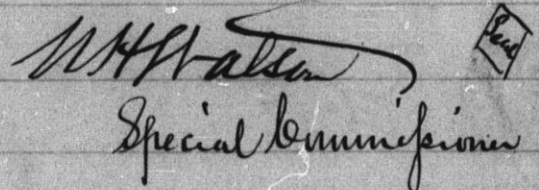 W H Watson Seal
Special Commissioner